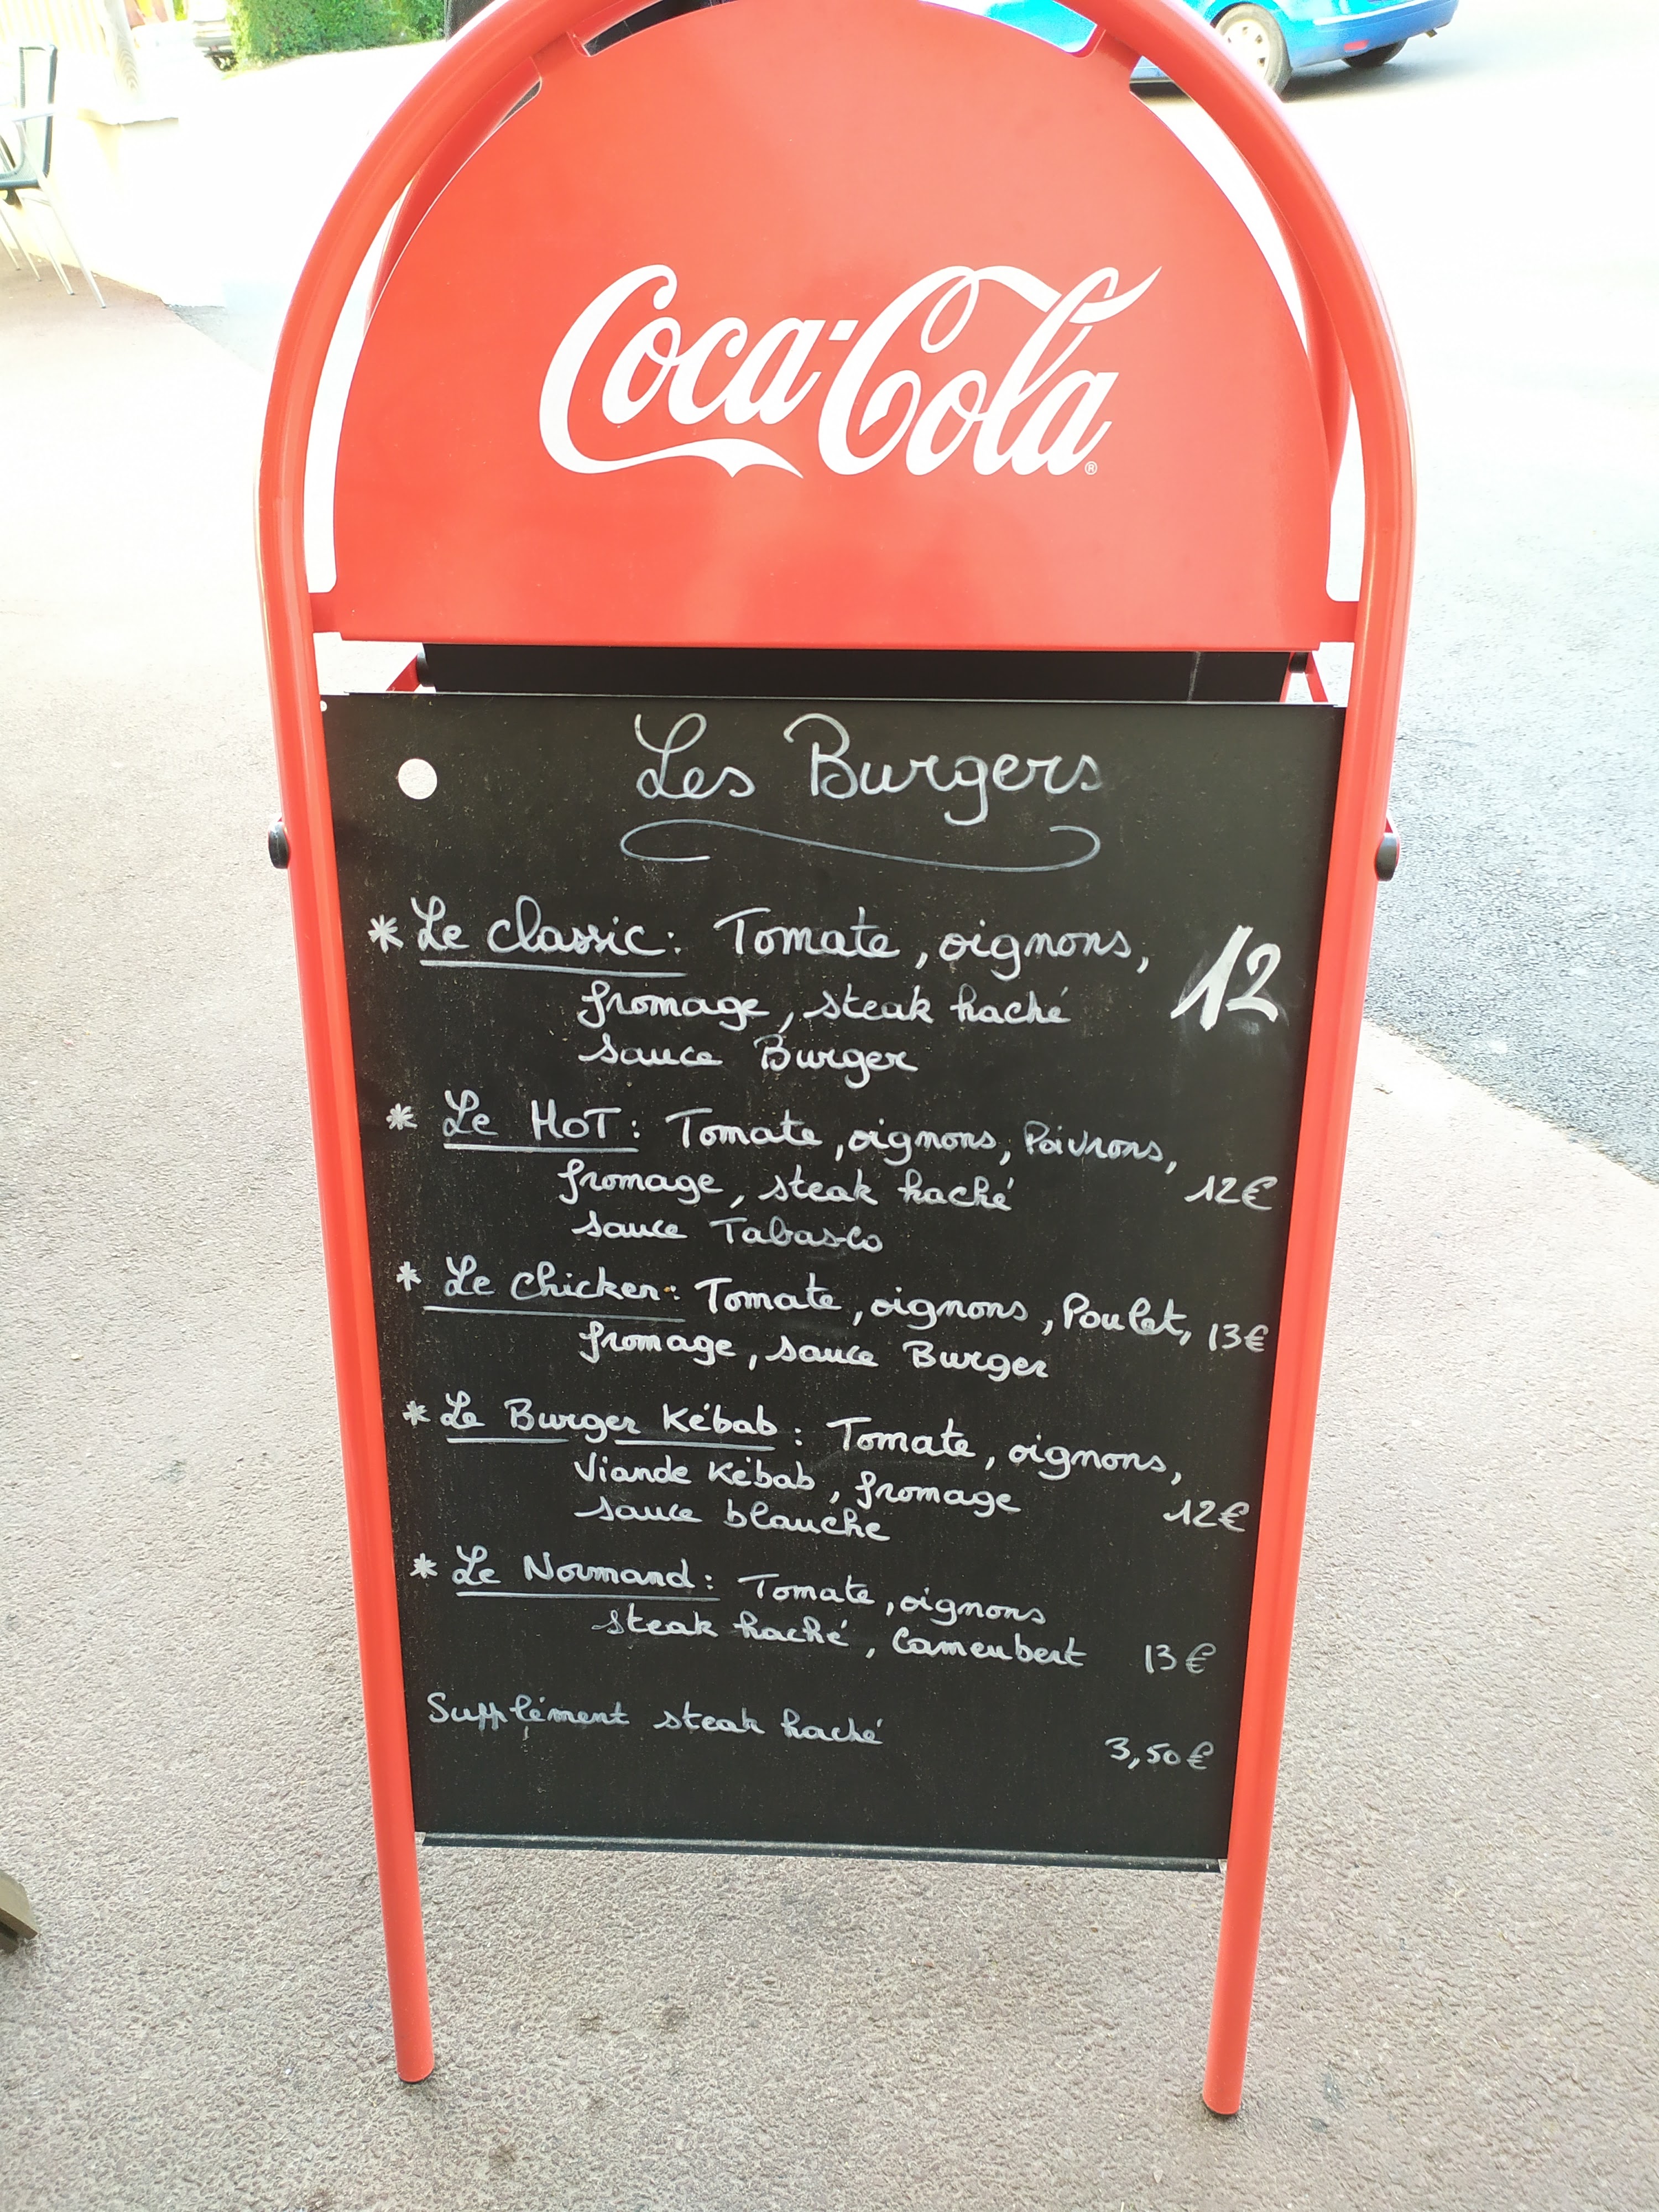 Coca-Cola®
Les Burgers
* Le classic: Tomate, oignons,
fromage, steak haché 12
sauce Burger
* Le HOT: Tomate, oignons, Poivrons,
fromage, steak haché 12€
sauce Tabasco
* Le Chicken: Tomate, oignons, Poulet, 13€
fromage, sauce Burger
* Le Burger Kébab: Tomate, oignons,
Viande Kébab, fromage
sauce blanche 12€
* Le Normand: Tomate, oignons
steak haché, Camembert 13€
Supplément steak haché 3,50€